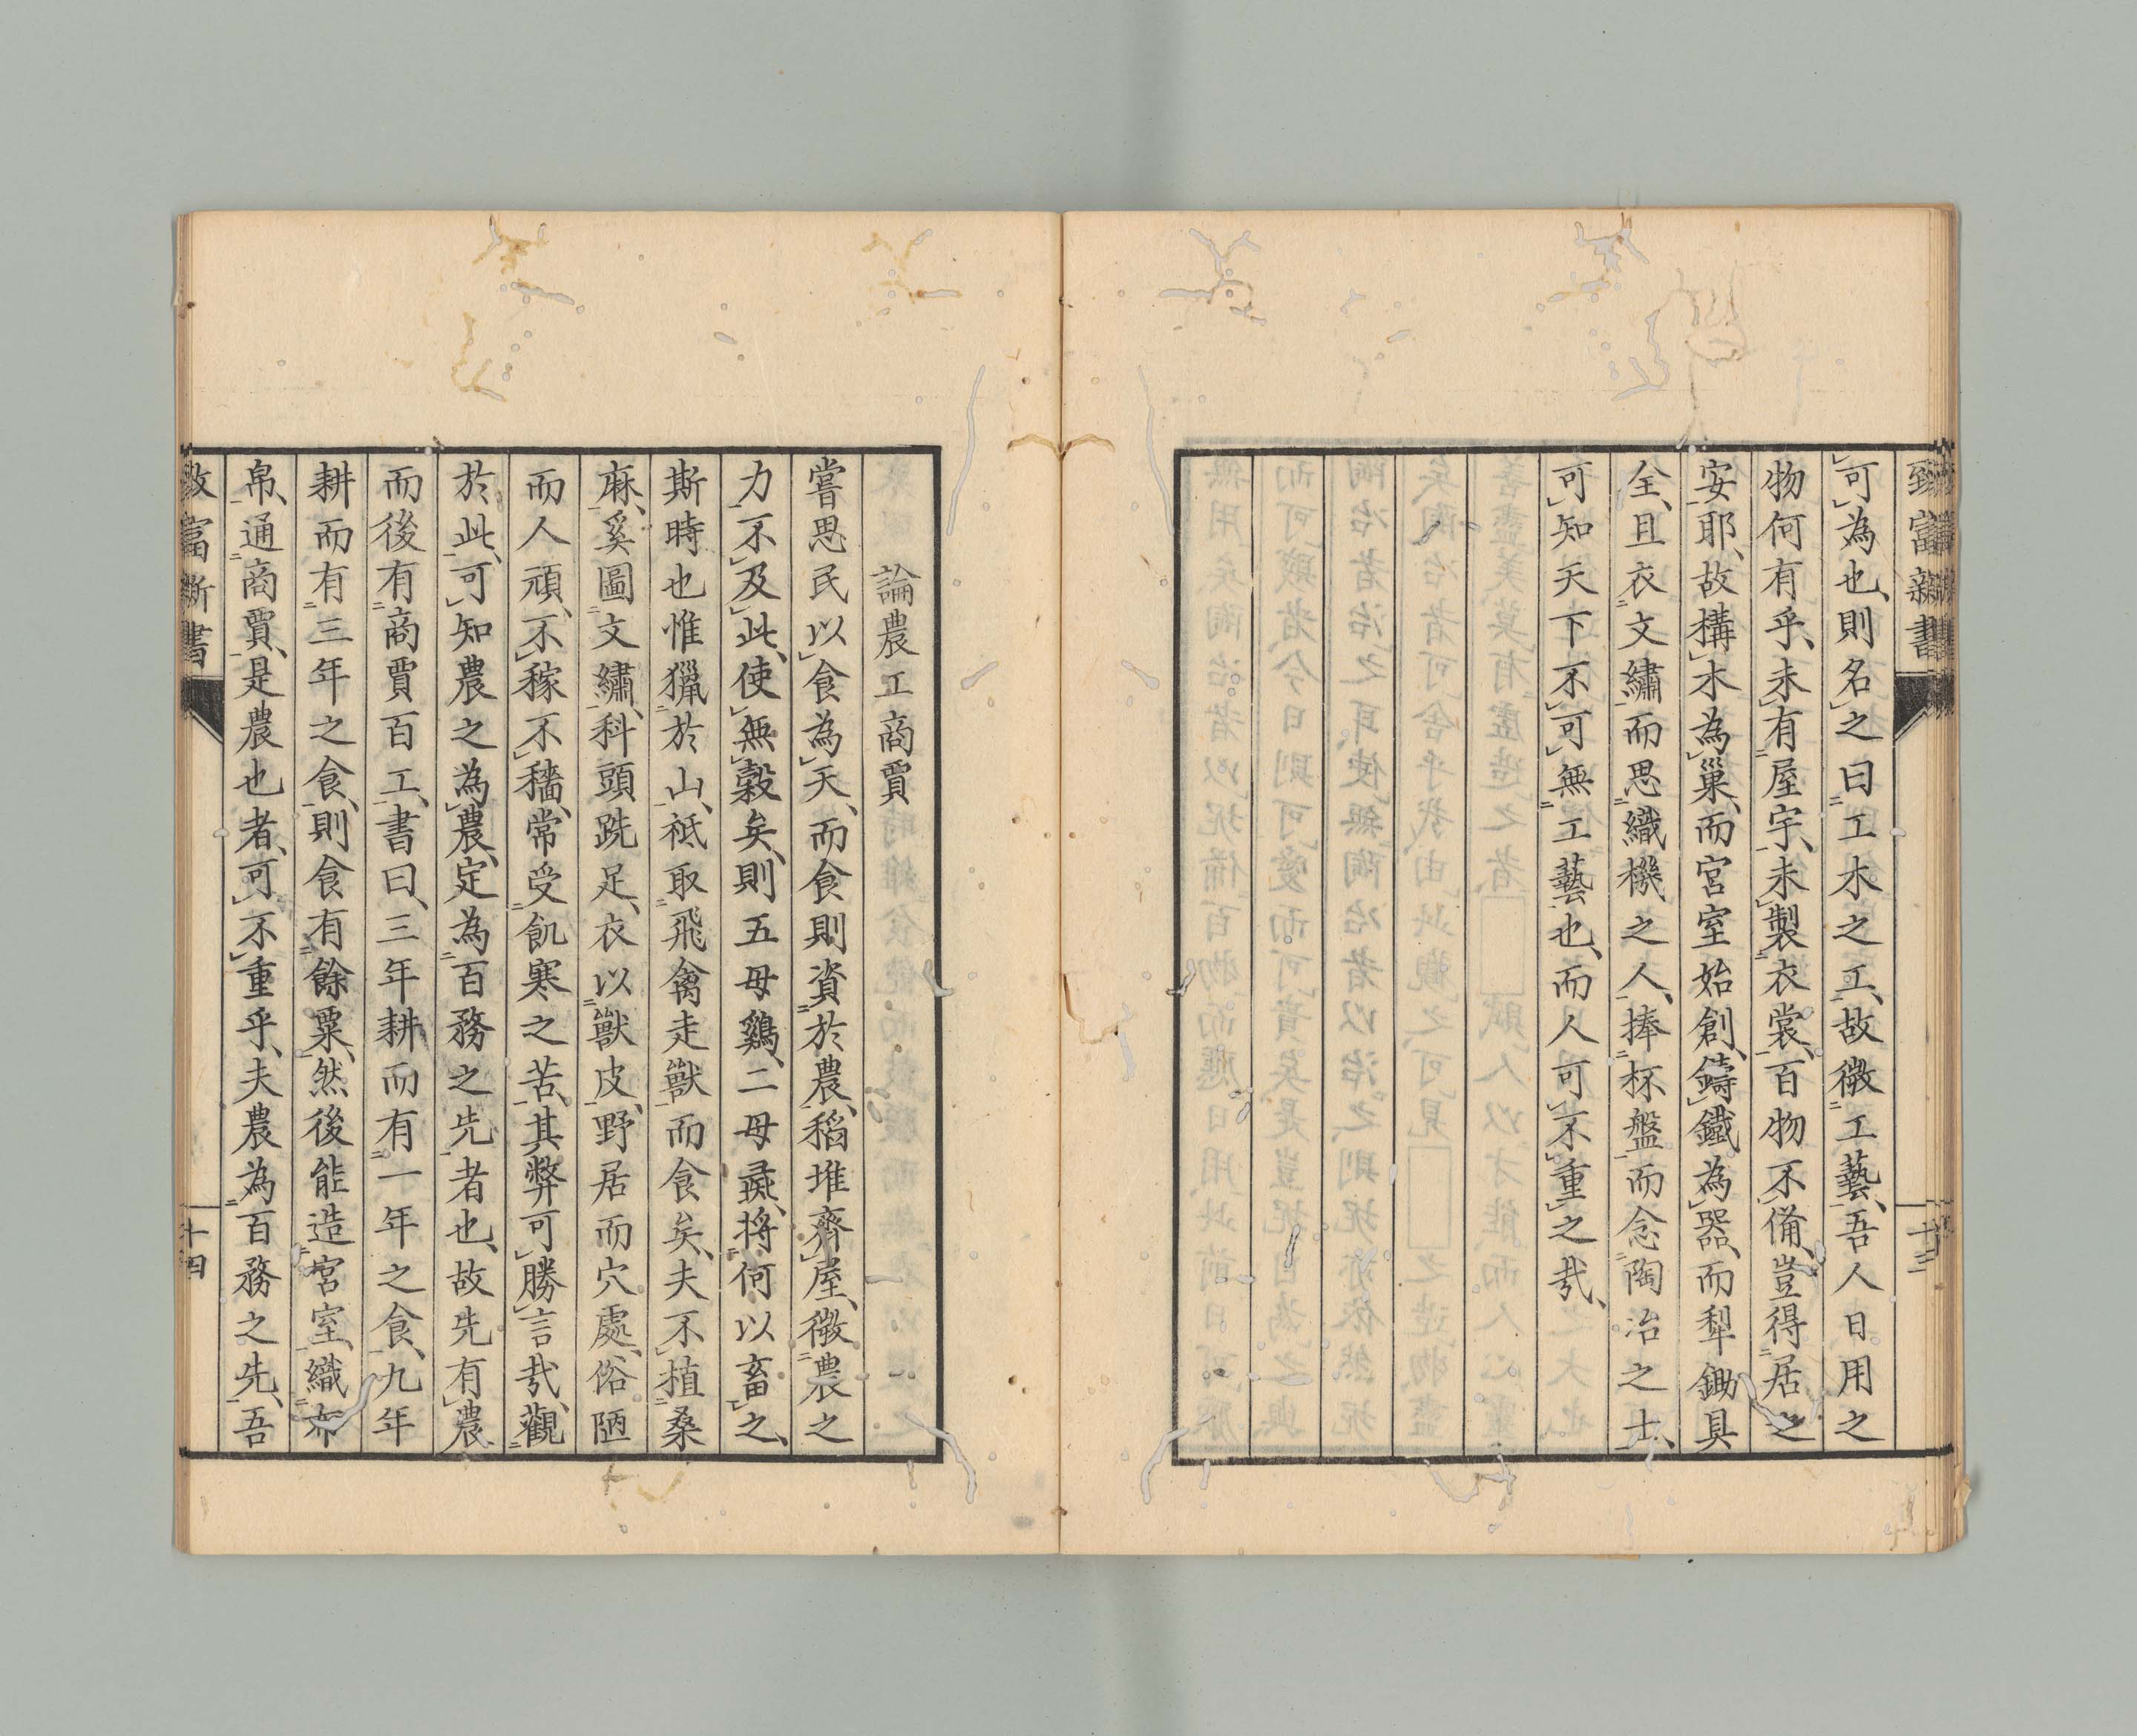 致富新書
十三
可為也、則名之曰工木之工、故微工藝、吾人日用之
物何有乎、未有屋宇、未製衣裳、百物不備、豈得居之
安耶、故搆木為巢、而宮室始創、鑄鐵為器、而犁鋤具
全、且衣文繡而思織機之人、捧杯盤而念陶冶之士、
可知天下不可無工藝也、而人可不重之哉、
論農工商賈
嘗思民以食為天、而食則資於農、稻堆齊屋、微農之
力不及此、使無穀矣、則五母鷄、二母彘、將何以畜之、
斯時也惟獵於山、祗取飛禽走獸而食矣、夫不植桑
麻、奚圖文繡、科頭跣足、衣以獸皮、野居而穴處、俗陋
而人頑、不稼不穡、常受飢寒之苦、其弊可勝言哉、觀
於此、可知農之為農、定為百務之先者也、故先有農
而後有商賈百工、書曰、三年耕而有一年之食、九年
耕而有三年之食、則食有餘粟、然後能造宮室、織布
帛、通商賈、是農也者、可不重乎、夫農為百務之先、吾
致富新書
十四